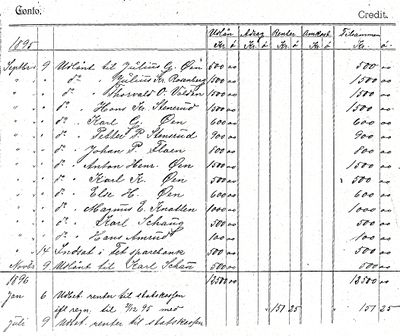 Conto. Credit.
Udlån Afdrag Renter Omkost. Tilsammen
Kr. ö Kr. ö Kr. ö Kr. ö Kr. ö
1895
Septbr 9 Udlånt til Julius G. Øen 500 00 500 00
" " do. " Julius Kr. Rosenberg 1500 00 1500 00
" " do. " Thorvald O. 1000 00 1000 00
" " do. " Hans Kr. Stensrud 1500 00 1500 00
" " do. " Karl G. Øen 600 00 600 00
" " do. " Petter P. Stensrud 900 00 900 00
" " do. " Johan P. Flaen 800 00 800 00
" " do. " Anton Henr. Øen 1500 00 1500 00
" " do. " Karl Kr. Øen 500 00 500 00
" " do. " Else H. Øen 600 00 600 00
" " do. " Magnus E. Knatten 1000 00 1000 00
" " do. " Karl Schaug 500 00 500 00
" " do. " Hans Amrud 100 00 100 00
" 14 Indsat i Fet sparebank
Novbr 9 Udlånt til Karl 500 00 500 00
1896 13500 00 13500 00
Jan 6 Udbet renter til statskassen
ift regn. til 31/12 95 med 151 25 151 25
Juli 9 Udbet. renter til statskassen